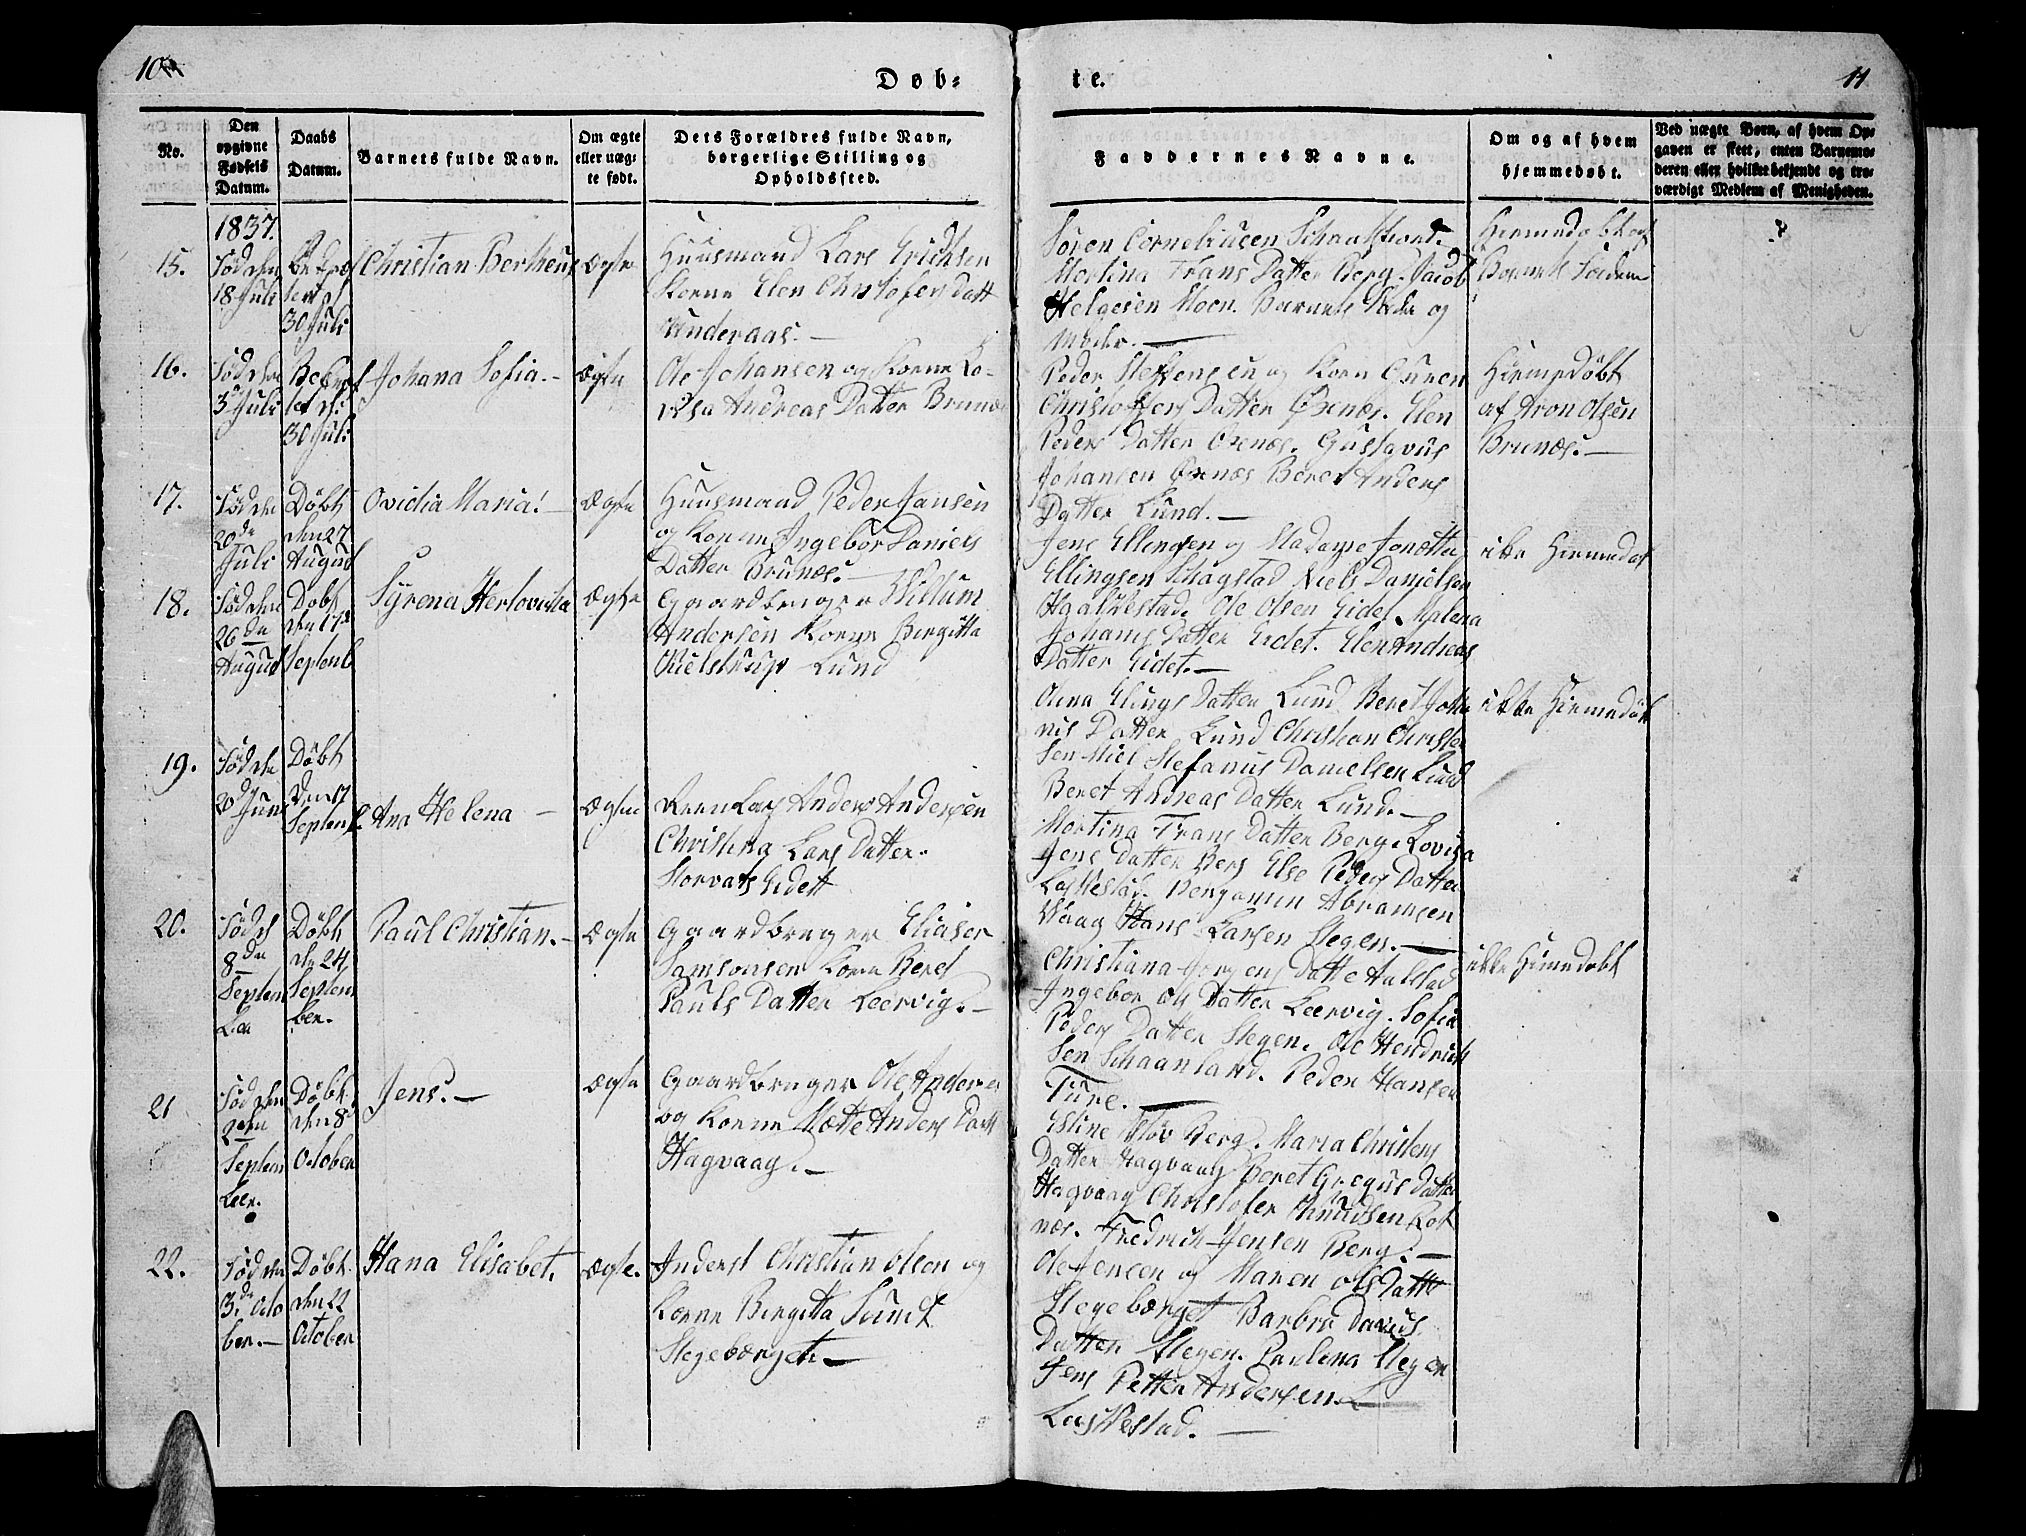 10
Døb=
te.
11
No.
Den
opgivne
Fødsels
Datum.
Daabs
Datum.
Barnets fulde Navn.
Om ægte
eller uæg-
te født.
Dets Forældres fulde Navn,
borgerlige Stilling og
Opholdssted.
Faddernes Navne.
Om og af hvem
hjemmedøbt.
Ved uægte Børn, af hvem Op-
gaven er skeet, enten Barnemo-
deren eller hvilket bekjendt og tro-
værdigt Medlem af Menigheden.
1837.
15.
Fød den
18 Juli
30 Juli
Christian Bertheus
Ægte
Huusmand Lars Erichsen
Kone Elen Christofers Datt
Underaas.
Søren Corneliusen
Martina Frans Datter Berg. Jacob
Helgesen Moen. Barnets Fader og
Moder.
Hiemedøbt af
Barnets Fader
16.
Fød den
3 Juli
30 Juli
Johana Sofia.
Ægte
Ole Johansen og Kone Lo-
visa Andreas Datter Brunæs
Peder Steffensen og Kone Guren
Christoffers Datter Øxnæs. Elen
Peders Datter Øxnæs. Gustavus
Johansen Øxnæs Beret Anders
Datter Lund.
Hiemedøbt
af Aron Olsen
Brunæs.
17.
Fød den
20de
Juli
Døbt
den 27
August
Ovidia Maria!
Ægte
Huusmand Peder Jansen
og Kone Ingebor Daniels
Datter Brunæs.
Jens Ellingsen og Madame Jonetta
Ellingsen Schagstad Niels Danielsen
Ole Olsen Eidet. Malena
Johanis Datter Eidet. Elen Andreas
Datter Eidet.
ikke Hiemedøbt
18.
Fød den
26de
August
Døbt
den 17de
Septemb
Syrena Herlovicka
Ægte
Gaardbruger Willum
Andersen Kone Birgitta
Lund
Olena Elings Datter Lund Beret Joha
nis Datter Lund Christian Christen
sen Stefanus Danielsen Lund
Beret Andreas Datter Lund.
ikke Hiemedøbt
19.
Fød den
20 Juni
Døbt
Den 17
Septemb
Ana Helena
Ægte
Anders Andersen
Christina Lars Datter.
Storvats Eidett
Martina Frans Datter Berg. Lovisa
Jens Datter Berg Else Peders Datter
Laskestad. Benjamin Abramsen
Waag Hans Larsen Stegen.
20.
Fød d
8de
Septem
ber
Døbt
den 24
Septem
ber.
Paul Christian.
Ægte
Gaardbruger Eliaser
Samsonsen Kone Beret
Pauls Datter Leervig.
Christiana Jørgens Datte
Ingebor Ols Datter Leervig. Sofia
Peders Datter Stegen. Ole Hendrich
sen Schaanland. Peder Hansen
Ture.
ikke Hiemedøbt
21
Fød den
Septem
ber.
Døbt
den 8de
October
Jens.
Ægte
Gaardbruger Ole Anders
og Kone Mætte Anders Datt
Hagvaag.
Berg. Maria Christens
Datter Hagvaag Beret Gregus Datter
Hagvaag Christofer Knudsen Rot
næs. Fredrich Jensen Berg.
22.
Fød den
3de Octo
ber.
Døbt
den 22
October
Hana Elisabet.
Ægte.
Inderst Christian Olsen og
Kone Birgitta Lund
Stegebærget.
Ole Jensen og Maren Ols Datter
Stegebærget Barbro Davids
Datter Stegen. Paulina Stegen
Jens Petter Andersen.
Laskestad.